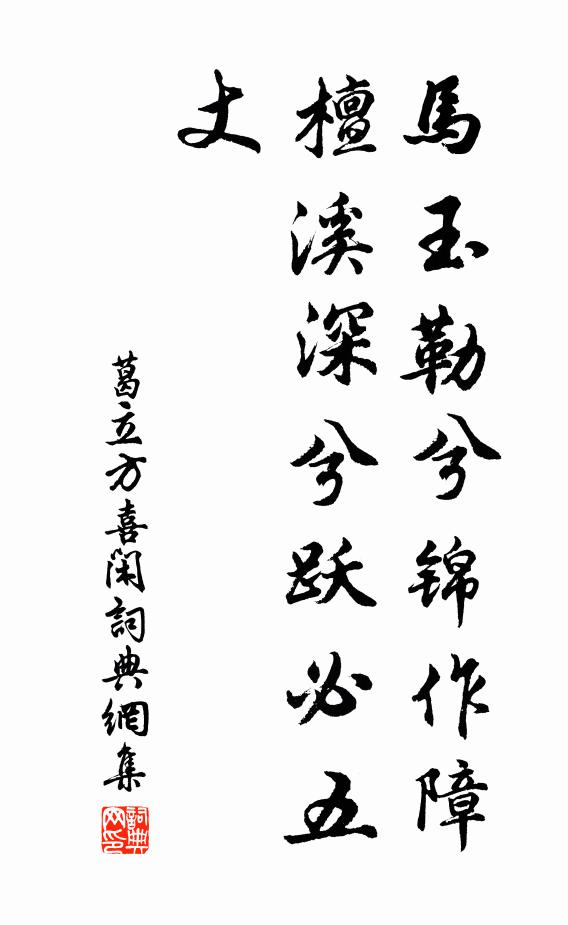 馬玉勒兮锦作障
檀溪深兮跃必五
丈
葛立方喜閑詞典網集
詞典
网印